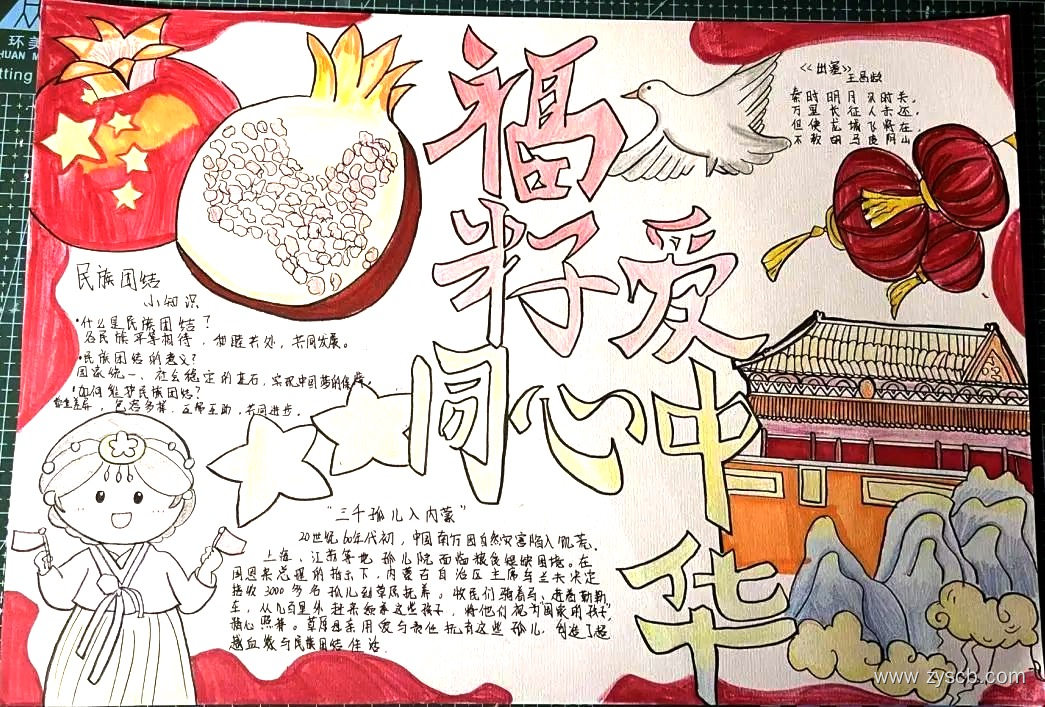 福籽同心
爱中华
《出塞》
王昌龄
秦时明月汉时关，
万里长征人未还。
但使龙城飞将在，
不教胡马度阴山
民族团结
小知识
·什么是民族团结？
各民族平等相待，和睦共处，共同发展。
·民族团结的意义？
国家统一、社会稳定的基石，实现中国梦的保障。
·如何维护民族团结？
包容多样，互帮互助，共同进步。
"三千孤儿入内蒙"
20世纪60年代初，中国南方因自然灾害陷入饥荒，
上海、江苏等地孤儿院面临粮食短缺困境。在
周恩来总理的指示下，内蒙古自治区主席乌兰夫决定
接收3000多名孤儿到草原抚养。牧民们骑着马、赶着勒勒
车，从几百里外赶来领养这些孩子，将他们视为"国家的孩子"
精心照料。草原母亲用爱与责任抚育这些孤儿，创造了超
越血缘与民族团结佳话.
环美
HUAN M
tting
www.zyscb.com